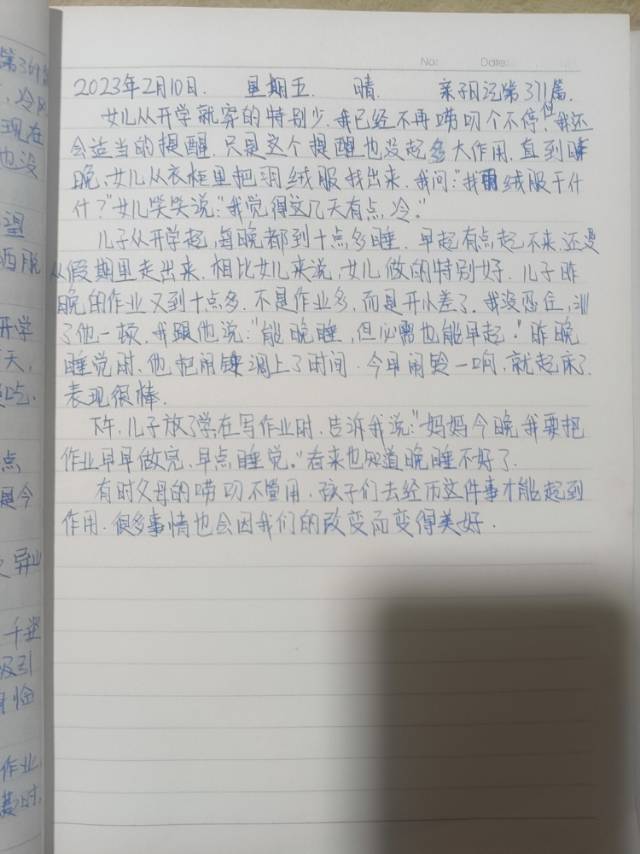 No:
Date:
2023年2月10日. 星期五. 晴. 亲子日记第371篇.
女儿从开学就穿的特别少.我已经不再唠叨个不停,但我还
会适当的提醒.只是这个提醒也没起多大作用.直到昨
晚,女儿从衣柜里把羽绒服找出来.我问:"找羽绒服干什
什?"女儿笑笑说:"我觉得这几天有点冷."
儿子从开学起,每晚都到十点多睡.早起有点起不来.还没
从假期里走出来.相比女儿来说,女儿做的特别好.儿子昨
晚的作业又到十点多.不是作业多,而是开小差了.我没忍住,训
了他一顿.我跟他说:"能晚睡,但必需也能早起."昨晚
睡觉时.他把闹钟调上了时间.今早闹铃一响,就起床了.
表现很棒.
下午.儿子放了学在写作业时.告诉我说:"妈妈今晚我要把
作业早早做完,早点睡觉."看来也知道晚睡不好了.
有时父母的唠叨不管用.孩子们去经历这件事才能起到
作用.很多事情也会因我们的改变而变得美好.
现在
也没
望
开学
天,
吃.
点
是今
千
吸引
临
作业
时.